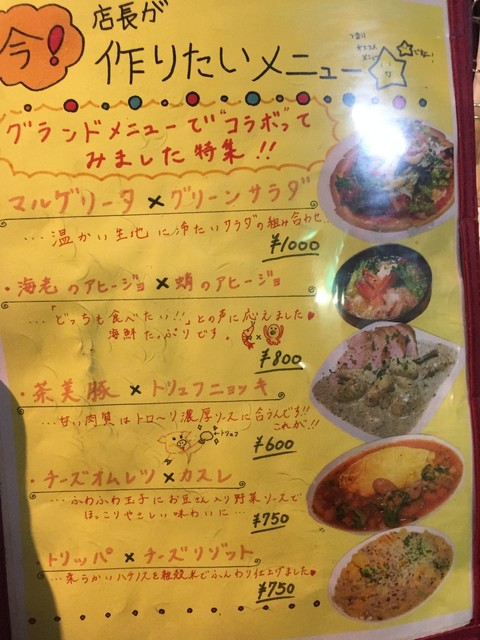 今!
店長が
作りたいメニュー
グランドメニューで"コラボ"って
みました特集!!
マルゲリータ×グリーンサラダ
…温かい生地に冷たいサラダの組み合わせ…
¥1000
・海老のアヒージョ×蛸のアヒージョ
…「どっちも食べたい!!」との声に応えました♥
海鮮たっぷりです。
¥800
・茶美豚×トリュフニョッキ
…甘い肉質はトロ〜リ濃厚ソースに合うんです!!
これが!!
←トリュフ
¥600
・チーズオムレツ×カスレ
…ふわふわ玉子にお豆さん入り野菜ソースで
ほっこりやさしい味わいに…
¥750
・トリッパ×チーズリゾット
…柔らかいハチノスを雑穀米でふんわり仕上げました♥
¥750